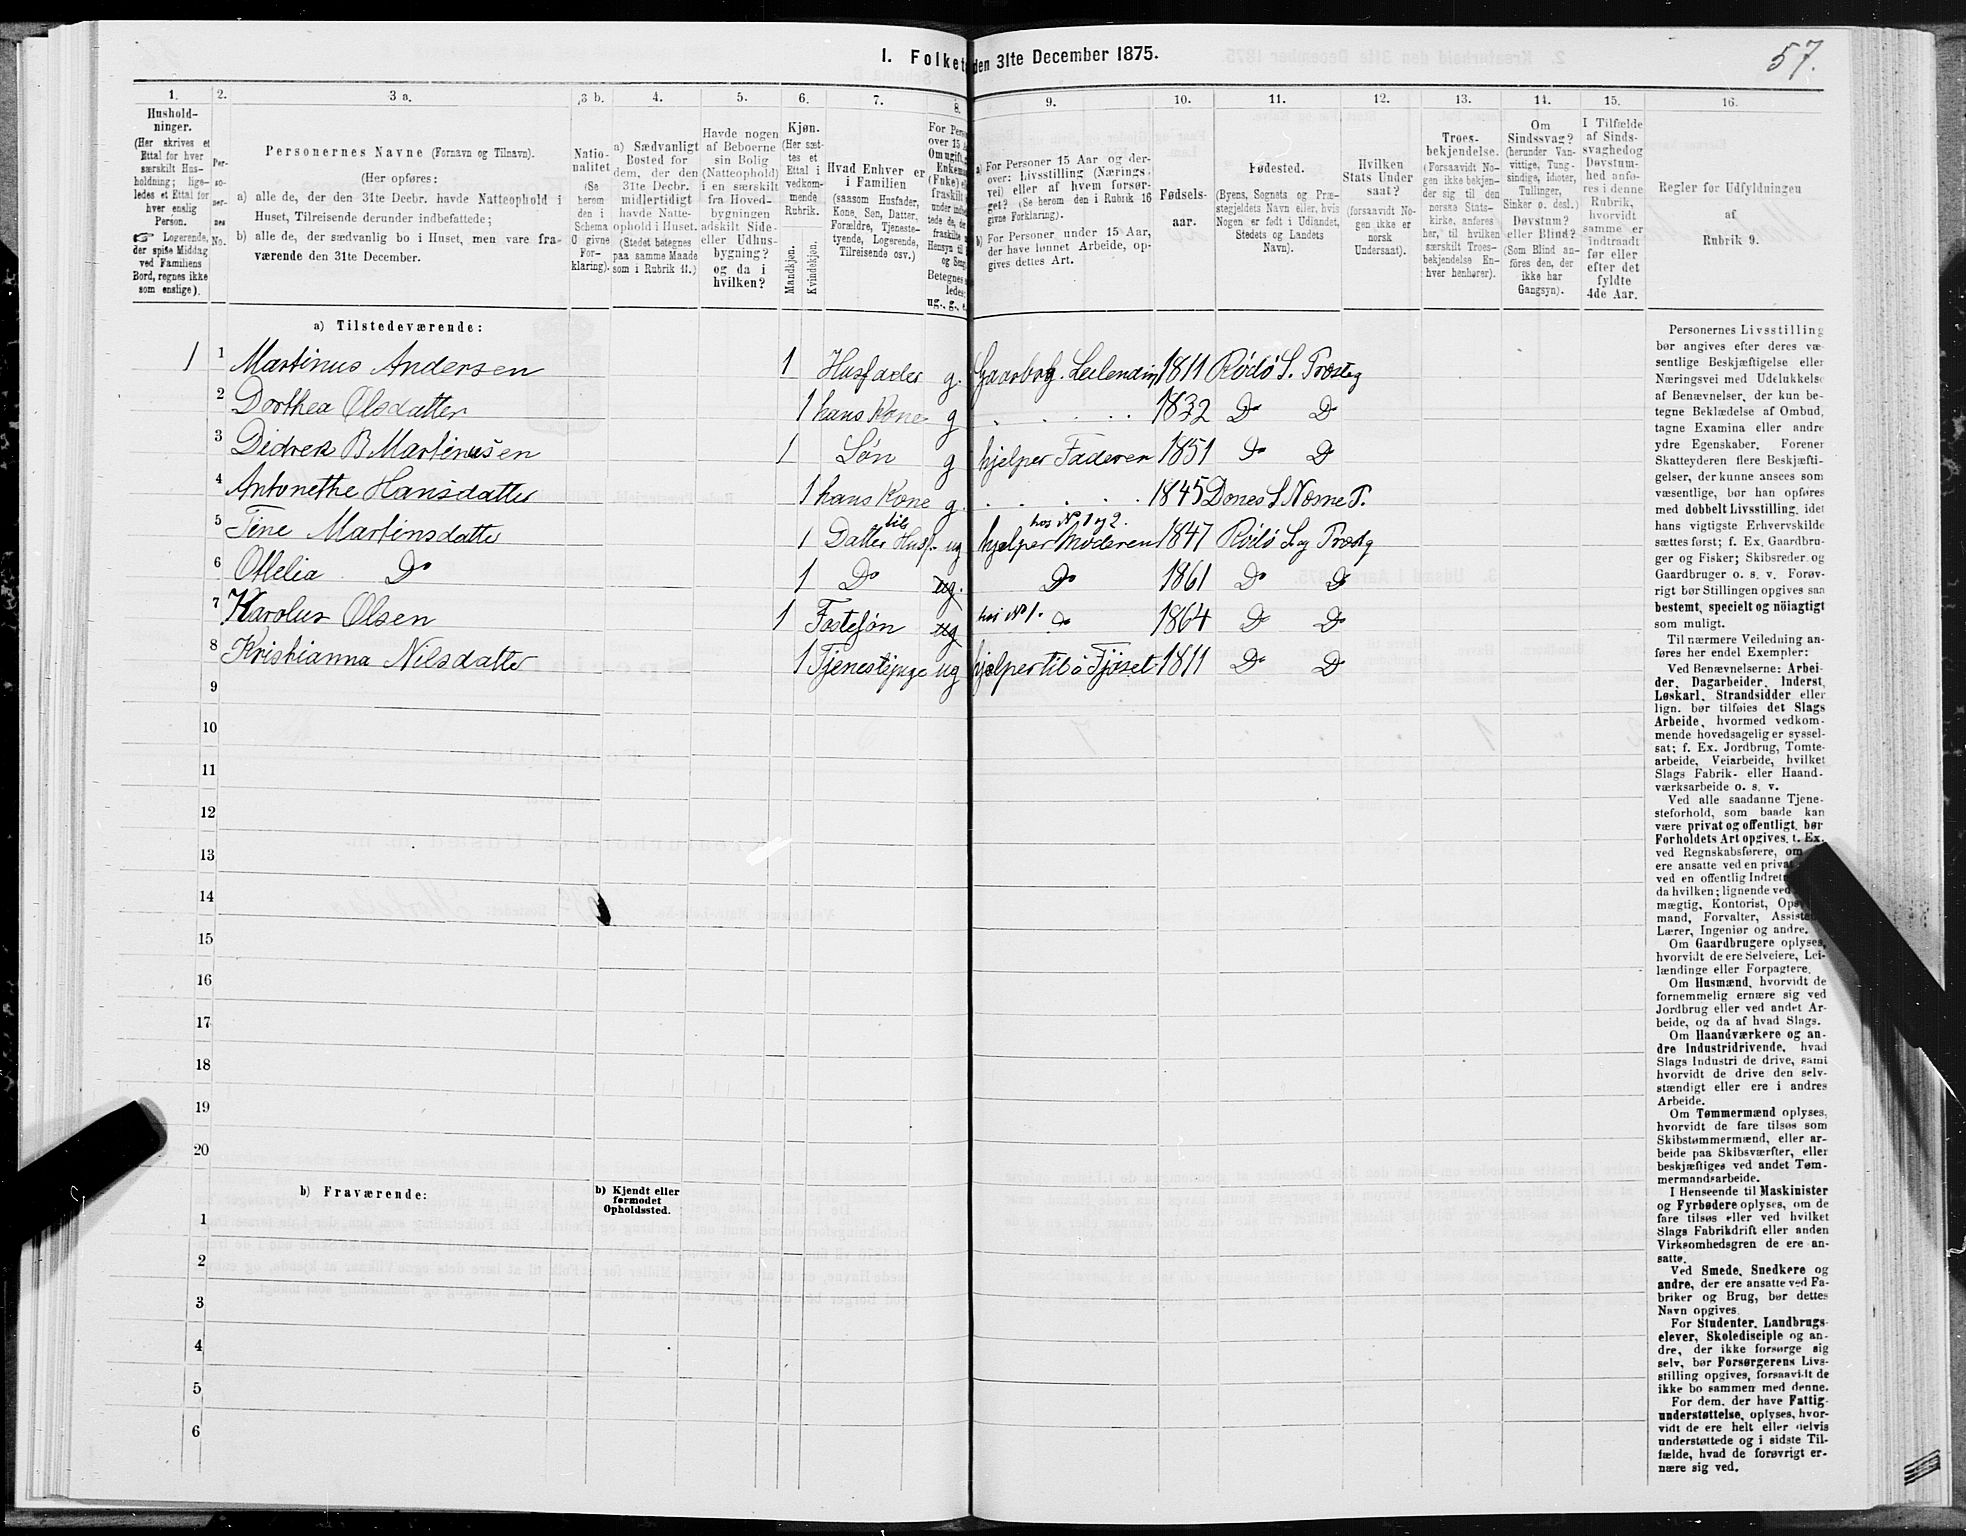 I. Folket den 31te December 1875.
57.
1. 2. 3 a. 3 b. 4. 5. 6. 7. 8. 9. 10. 11. 12. 13. 14. 15. 16.
Hushold-
ninger.
(Her skrives et
Ettal for hver
særskilt Hus-
holdning; lige-
ledes et Ettal for
hver enslig
Person.
☞ Logerende,
der spise Middag
ved Familiens
Bord, regnes ikke
som enslige).
Per-
so-
ner-
nes
No.
Personernes Navne (Fornavn og Tilnavn).
(Her opføres:
a) alle de, der den 31te Decbr. havde Natteophold i
Huset, Tilreisende derunder indbefattede;
b) alle de, der sædvanlig bo i Huset, men vare fra-
værende den 31te December.
Natio-
nalitet
(Se
herom
den i
Schema
C givne
For-
klaring).
a) Sædvanligt
Bosted for
dem, der den
31te Decbr.
midlertidigt
havde Natte-
ophold i Huset.
(Stedet betegnes
paa samme Maade
som i Rubrik 11.)
Havde nogen
af Beboerne
sin Bolig
(Natteophold)
i en særskilt
fra Hoved-
bygningen
adskilt Side-
eller Udhus-
bygning?
og da i
hvilken?
Kjøn.
(Her sæt-
tes et
Ettal i
vedkom-
mende
Rubrik.
Mandkjøn.
Kvindekjøn.
Hvad Enhver er
i Familien
(saasom Husfader,
Kone, Søn, Datter,
Forældre, Tjeneste-
tyende, Logerende,
Tilreisende osv.)
For Pers
over 15 A
Om ugift, g
Enkeman
(Enke) el
fraskilt
Betegnes
ledes:
ug., g., e.
a) For Personer 15 Aar og der-
over: Livsstilling (Nærings-
vei) eller af hvem forsør-
get? (Se herom den i Rubrik 16
givne Forklaring).
b) For Personer under 15 Aar,
der have lønnet Arbeide, op-
gives dettes Art.
Fødsels-
aar.
Fødested.
(Byens, Sognets og Præ-
stegjeldets Navn eller, hvis
Nogen er født i Udlandet,
Stedets og Landets
Navn).
Hvilken
Stats Under
saat?
(forsaavidt No-
gen ikke er
norsk
Undersaat).
Troes-
bekjendelse.
(Forsaavidt No-
gen ikke bekjen-
der sig til den
norske Stats-
kirke, anføres
her, til hvilken
særskilt Troes-
bekjendelse En-
hver henhører).
Om
Sindssvag?
(herunder Van-
vittige, Tung-
sindige, Idioter,
Tullinger,
Sinker o. desl.)
Døvstum?
eller Blind?
(Som Blind an-
føres den, der
ikke har
Gangsyn).
I Tilfælde
af Sinds-
svaghed og
Døvstum-
hed anfø-
res i denne
Rubrik,
hvorvidt
samme er
indtraadt
før eller
efter det
fyldte
4de Aar.
Regler for Udfyldningen
af
Rubrik 9.
a) Tilstedeværende:
1 1 Martinus Andersen 1 Husfader g. Gaarbrg. Leilending 1811 Rödö S. Prosteg
2 Dorthea Olsdatter 1 hans Kone g 1832 Do Do
3 Didrek B Martinusen 1 Søn g hjelper Faderen 1851 Do Do
4 Antonethe Hansdatter 1 hans Kone g. 1845 Dønes S Nesne P.
5 Tine Martinsdatte 1 Datter til Husf. ug hjelper Moderen hos No 1 og 2. 1847 Rödö S. og Prestg
6 Otlelia Do 1 Do ug. Do 1861 Do Do
7 Karolus Olsen 1 Fostesøn ug hos No 1. Do 1864 Do Do
8 Kristianna Nilsdatter 1 Tjenestpige ug hjelper til i Fjöset 1811 Do Do
9
10
11
12
13
14
15
16
17
18
19
20
b) Fraværende:
b) Kjendt eller
formodet
Opholdssted.
1
2
3
4
5
6
Personernes Livsstilling
bør angives efter deres væ-
sentlige Beskjæftigelse eller
Næringsvei med Udelukkelse
af Benævnelser, der kun be-
tegne Beklædelse af Ombud,
tagne Examina eller andre
ydre Egenskaber. Forener
Skatteyderen flere Beskjæfti-
gelser, der kunne ansees som
væsentlige, bør han opføres
med dobbelt Livsstilling, idet
hans vigtigste Erhvervskilde
sættes først; f. Ex. Gaardbru-
ger og Fisker; Skibsreder og
Gaardbruger o. s. v. Forøv-
rigt bør Stillingen opgives saa
bestemt, specielt og nöiagtigt
som muligt.
Til nærmere Veiledning an-
føres her endel Exempler:
Ved Benævnelserne: Arbei-
der, Dagarbeider, Inderst,
Løskarl, Strandsidder eller
lign. bør tilføies det Slags
Arbeide, hvormed vedkom-
mende hovedsagelig er syssel-
sat; f. Ex. Jordbrug, Tomte-
arbeide, Veiarbeide, hvilket
Slags Fabrik- eller Haand-
værksarbeide o. s. v.
Ved alle saadanne Tjene-
steforhold, som baade kan
være privat og offentligt, bør
Forholdets Art opgives, t. Ex.
ved Regnskabsførere, om
ere ansatte ved en privat
ved en offentlig Indret
da hvilken; lignende ved
mægtig, Kontorist, Ops
mand, Forvalter, Assiste
Lærer, Ingeniør og andre.
Om Gaardbrugere oplyses,
hvorvidt de ere Selveiere, Lei-
lændinge eller Forpagtere.
Om Husmænd, hvorvidt de
fornemmelig ernære sig ved
Jordbrug eller ved andet Ar-
beide, og da af hvad Slags.
Om Haandværkere og an-
dre Industridrivende, hvad
Slags Industri de drive, samt
hvorvidt de drive den selv-
stændigt eller ere i andres
Arbeide.
Om Tømmermænd oplyses,
hvorvidt de fare tilsøs som
Skibstømmermænd, eller ar-
beide paa Skibsværfter, eller
beskjæftiges ved andet Tøm-
mermandsarbeide.
I Henseende til Maskinister
og Fyrbødere oplyses, om de
fare tilsøs eller ved hvilket
Slags Fabrikdrift eller anden
Virksomhedsgren de ere an-
satte.
Ved Smede, Snedkere og
andre, der ere ansatte ved Fa-
briker og Brug, bør dettes
Navn opgives.
For Studenter, Landbrugs-
elever, Skoledisciple og an-
dre, der ikke forsørge sig
selv, bør Forsørgerens Livs-
stilling opgives, forsaavidt de
ikke bo sammen med denne.
For dem, der have Fattig-
understøttelse, oplyses, hvor-
vidt de ere helt eller delvis
understøttede og i sidste Til-
fælde, hvad de forøvrigt er-
nære sig ved.